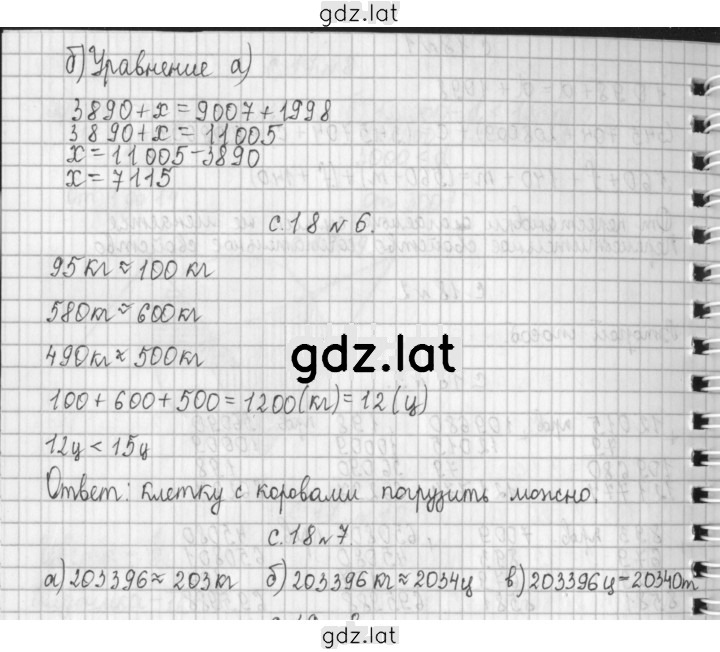 gdz.lat
б) Уравнение а)
3890+x=9007+1998
3890+x=11005
x=11005-3890
x=7115
с.18 №6.
95кг≈100кг
580кг≈600кг
490кг≈500кг
gdz.lat
100+600+500=1200(кг)=12(ц)
12ц<15ц
Ответ: клетку с коровами погрузить можно.
с.18 №7
а) 203396≈203кг б) 203396кг≈2034ц в) 203396ц≈20340т
gdz.lat